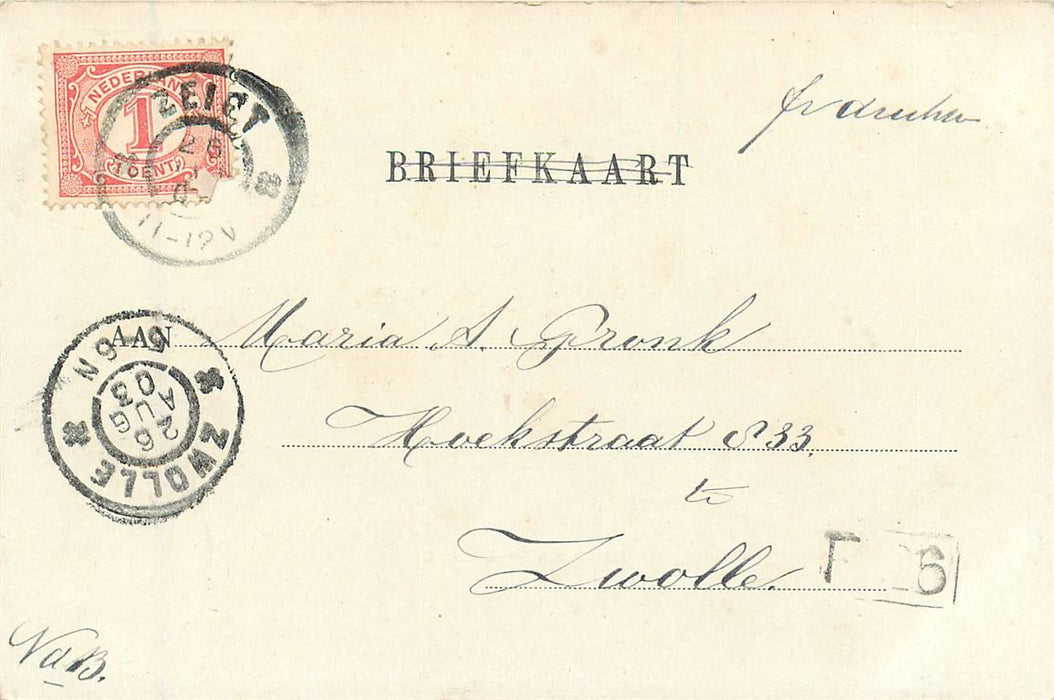 NEDERLAND
1
1 CENT
ZEIST
26
11-12V
BRIEFKAART
AAN Maria A. Gronk
Hoekstraat 833
te
Zwolle.
ZWOLLE
26
AUG
03
5-6N
F 6
V d B.